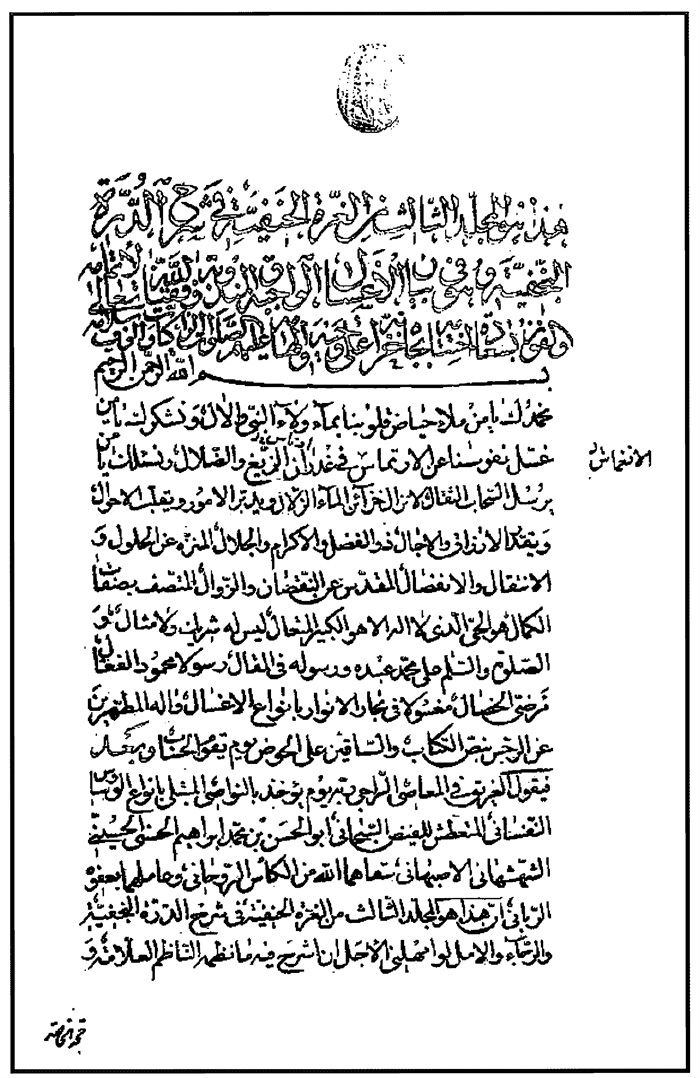 هذا هو المجلد الثالث من الغرة الحنفية في شرح الدرة
النجفية وهو في بيان الاغسال الواجبة والمندوبة وفقنا الله تعالى لاتمامه
والفوز بسعادة
بسم الله الرحمن الرحيم
نحمدك يا من ملاء حياض قلوبنا بماء ولاء النبي والال ونشكرك يا من
غسل نفوسنا عن الارتماس في غدران الزيغ والضلال ونسئلك يا من
الانغماس
يرسل السحاب الثقال لانزال خزائن الماء الزلال ويدبر الامور ويقلب الاحوال
ويقدر الارزاق والاجال ذو الفضل والاكرام والجلال المنزه عن الحلول و
الانتقال والانفصال المقدس عن النقصان والزوال المتصف بصفات
الكمال هو الحي الذي لا اله الا هو الكبير المتعال ليس له شريك ولا مثال و
الصلوة والسلم على محمد عبده ورسوله في المقال رسولا محمود الفعال
مرضي الخصال مغسولا في بحار الانوار بانواع الاغسال واله المطهرين
عن الرجس بنص الكتاب والساقين على الحوض يوم يقوم الحساب وبعد
فيقول الغريق في المعاصي الراجي ربه يوم يؤخذ بالنواصي المبتلى بانواع الوسواس
النفساني المتعطش للفيض السبحاني ابو الحسن بن محمد ابراهيم الحسني الحسيني
الشهشهاني الاصبهاني سقاهما الله من الكأس الروحاني وعاملهما بعفوه
الرباني ان هذا هو المجلد الثالث من الغرة الحنفية في شرح الدرة النجفية
والرجاء والامل لو امهلني الاجل ان اشرح فيه ما نظمه الناظم العلامة و